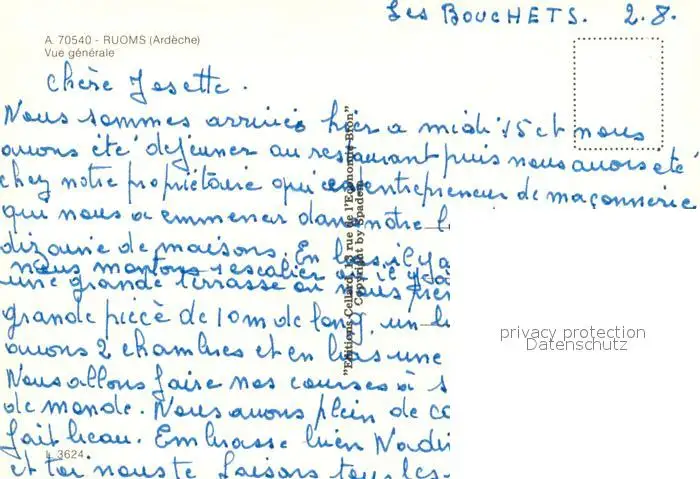 Les BOUCHETS. 2.8.
A. 70540 - RUOMS (Ardèche)
Vue générale
Chère Josette.
Nous sommes arrivés hier a midi 15 et nous
avons été déjeuner au restaurant puis nous avons été
chez notre propriétaire qui est entrepreneur de maçonnerie
qui nous a emmener dans notre l
dizaine de maisons. En bas il y a
nous montons 1 escalier et il y a
une grande terrasse ou nous
grande pièce de 10m de long, un
avons 2 chambres et en bas une
Nous allons faire nos courses à
de monde. Nous avons plein de
fait beau. Embrasse bien
et toi nous te faisons tous les
"Editions Cellard, 13 rue de l'Economie Bron"
Copyright by Spadem
L 3624
privacy protection
Datenschutz